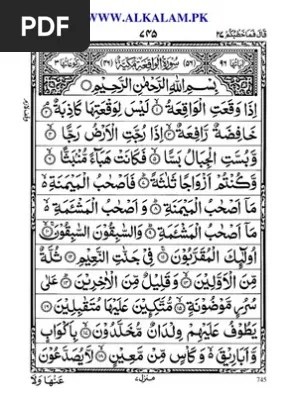 PDF
WWW.ALKALAM.PK
قال فما خطبكم ٢٧
٧٤٥
الواقعة ٥٦
بِسْمِ اللّٰهِ الرَّحْمٰنِ الرَّحِيْمِ
اِذَا وَقَعَتِ الْوَاقِعَةُ ۙ۝۱ لَيْسَ لِوَقْعَتِهَا كَاذِبَةٌ ۘ۝۲
خَافِضَةٌ رَّافِعَةٌ ۙ۝۳ اِذَا رُجَّتِ الْاَرْضُ رَجًّا ۙ۝۴
وَّبُسَّتِ الْجِبَالُ بَسًّا ۙ۝۵ فَكَانَتْ هَبَآءً مُّنْۢبَثًّا ۙ۝۶
وَّكُنْتُمْ اَزْوَاجًا ثَلٰثَةً ؕ۝۷ فَاَصْحٰبُ الْمَيْمَنَةِ ۙ۬
مَاۤ اَصْحٰبُ الْمَيْمَنَةِ ؕ۝۸ وَاَصْحٰبُ الْمَشْـَٔمَةِ ۙ۬
مَاۤ اَصْحٰبُ الْمَشْـَٔمَةِ ؕ۝۹ وَالسّٰبِقُوْنَ السّٰبِقُوْنَ ۚۙ۝۱۰
اُولٰٓئِكَ الْمُقَرَّبُوْنَ ۚ۝۱۱ فِيْ جَنّٰتِ النَّعِيْمِ ۝۱۲ ثُلَّةٌ
مِّنَ الْاَوَّلِيْنَ ۙ۝۱۳ وَقَلِيْلٌ مِّنَ الْاٰخِرِيْنَ ؕ۝۱۴ عَلٰى
سُرُرٍ مَّوْضُوْنَةٍ ۙ۝۱۵ مُّتَّكِـِٕيْنَ عَلَيْهَا مُتَقٰبِلِيْنَ ۝۱۶
يَطُوْفُ عَلَيْهِمْ وِلْدَانٌ مُّخَلَّدُوْنَ ۙ۝۱۷ بِاَكْوَابٍ
وَّاَبَارِيْقَ ۙ۬ وَكَاْسٍ مِّنْ مَّعِيْنٍ ۙ۝۱۸ لَّا يُصَدَّعُوْنَ
عَنْهَا وَلَا
منزل ٧
745